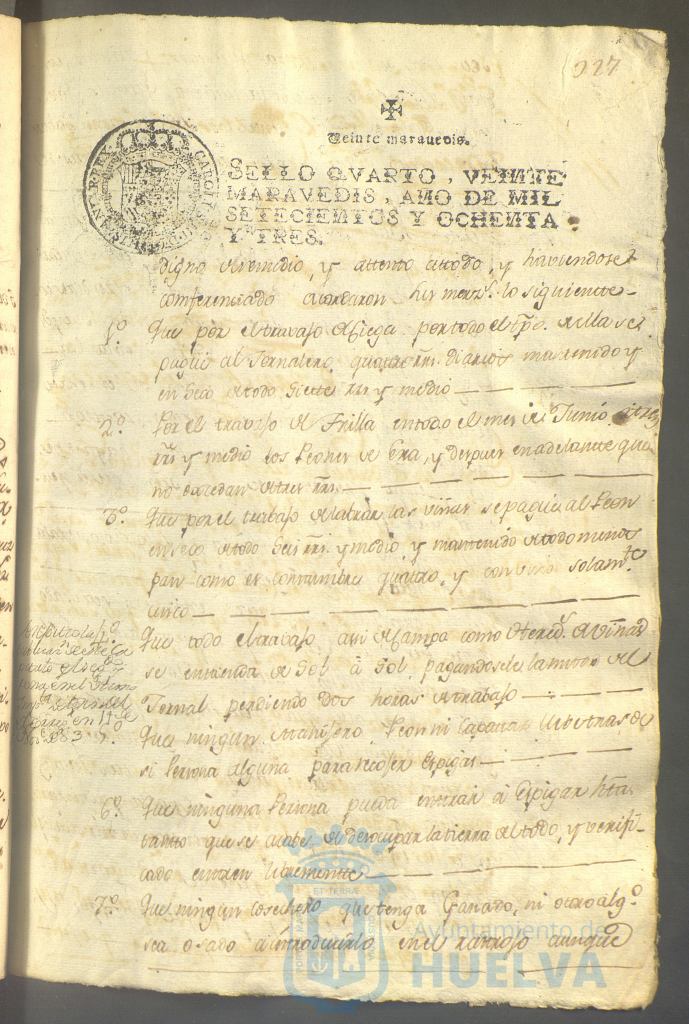 227
Veinte marauedis.
SELLO QVARTO, VEINTE
MARAVEDIS, AÑO DE MIL
SETECIENTOS Y OCHENTA
Y TRES.
CAROLUS
digno de remedio, y attento atodo, y haviendose
conferenciado acordaron sus merzs. lo siguiente
1º. Que por el travajo de siega por todo el tpo. de ella se
pague al Jornalero quatro rrs. diarios mantenido y
en seco de todo siete rrs y medio
2º. Por el travajo de Trilla en todo el mes de Junio
rrs y medio los Peones de Era, y despues en adelante que
no excedan de tres rrs.
3º. Que por el travajo de labrar las viñas se pague al Peon
en seco de todo seis rrs. y medio y mantenido de todo menos
pan como es constumbre quatro, y con vino solamte.
cinco
4º. Que todo el travajo asi de campo como de viñas
se entienda de Sol à Sol, pagandosele la mitad del
Jornal perdiendo dos horas de travajo
5º. Que ningun Peon ni Capataz detras de
si Persona alguna para recoser Espigas
6º. Que ninguna Persona pueda entrar à Espigar hta.
tanto que se acabe de desocupar la tierra del todo, y verifi-
cado entren libremente
7º. Que ningun cosechero que tenga Ganado, ni otro algo.
sea osado à introducirlo en el rastrojo aunque
Ayuntamiento de
HUELVA